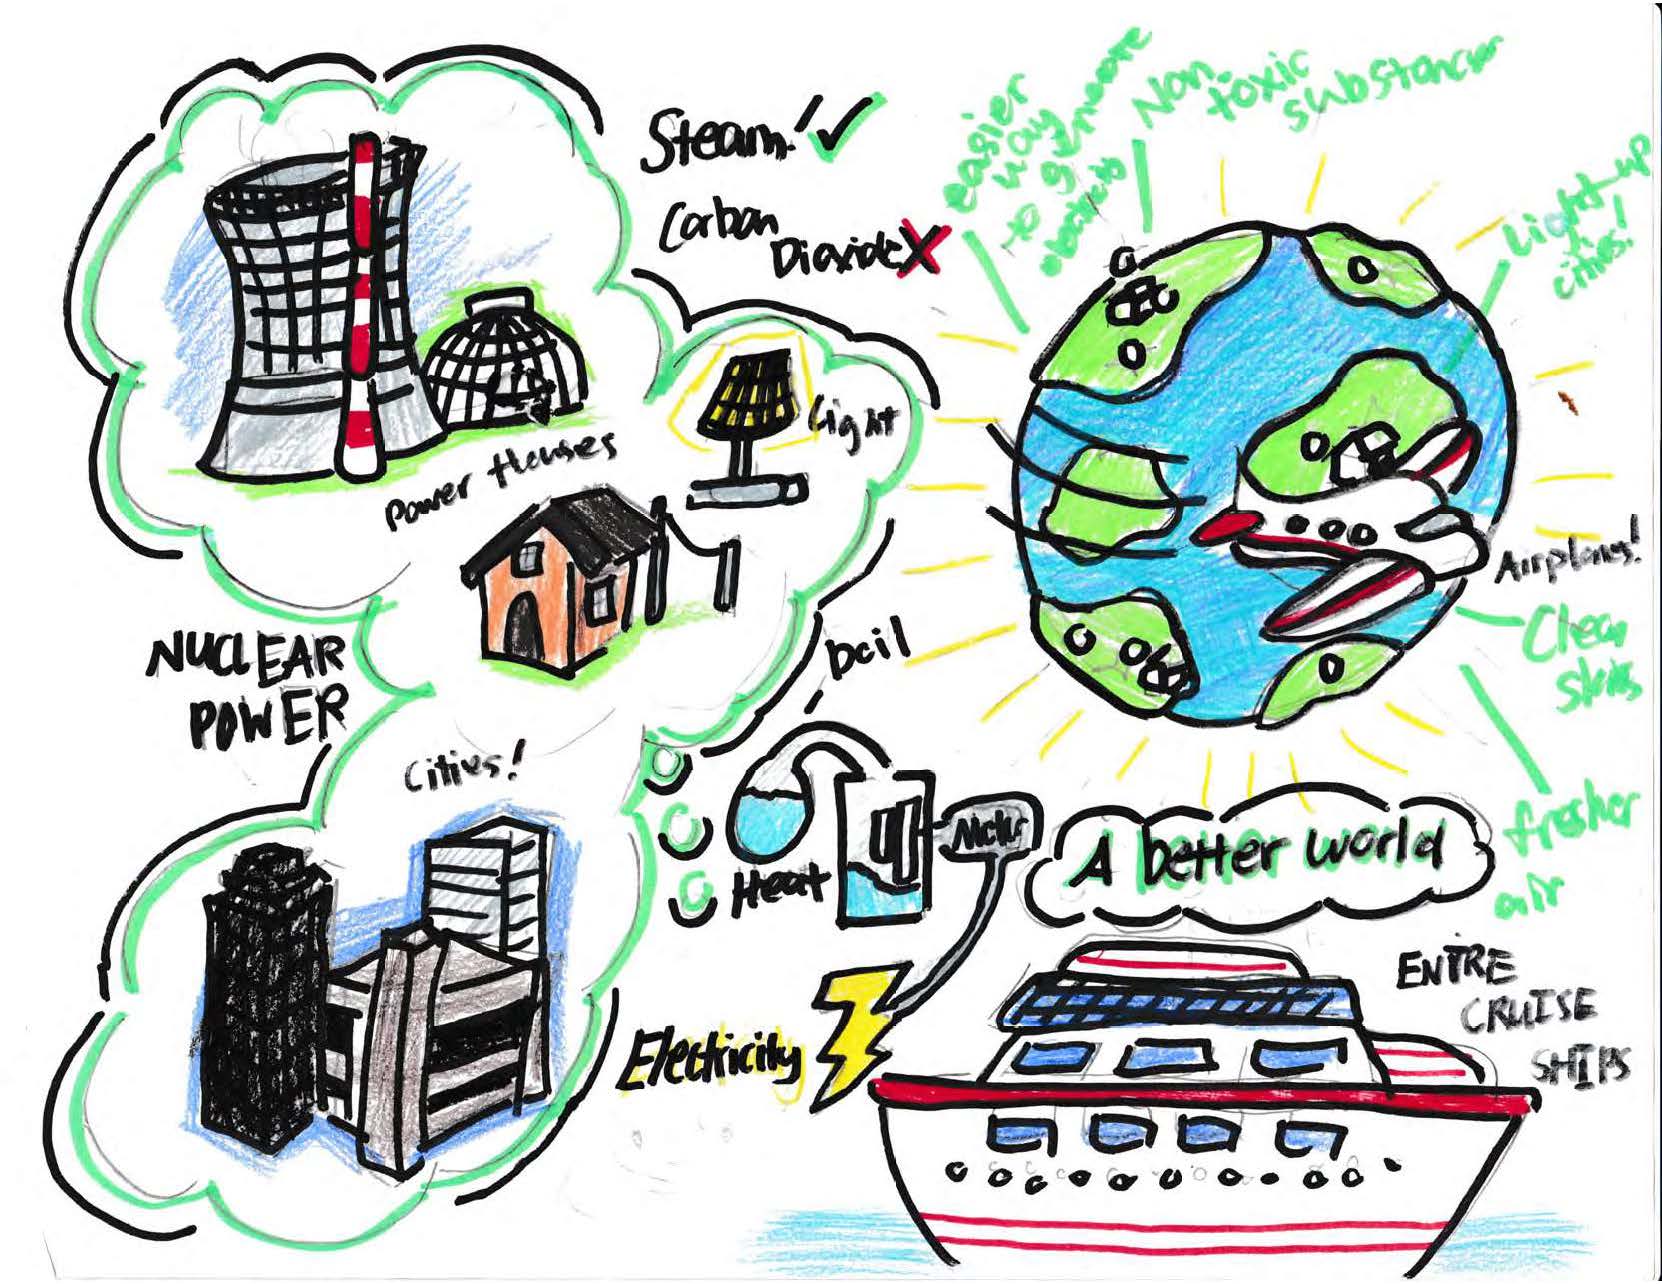 Steam! ✓
Carbon
Dioxide X
easier
way
to generate
Non
toxic
substances
Light up
cities!
Light
Power Houses
Airplanes!
Clean
skies
boil
NUCLEAR
POWER
Cities!
fresher
air
A better world
Heat
ENTIRE
CRUISE
SHIPS
Electricity